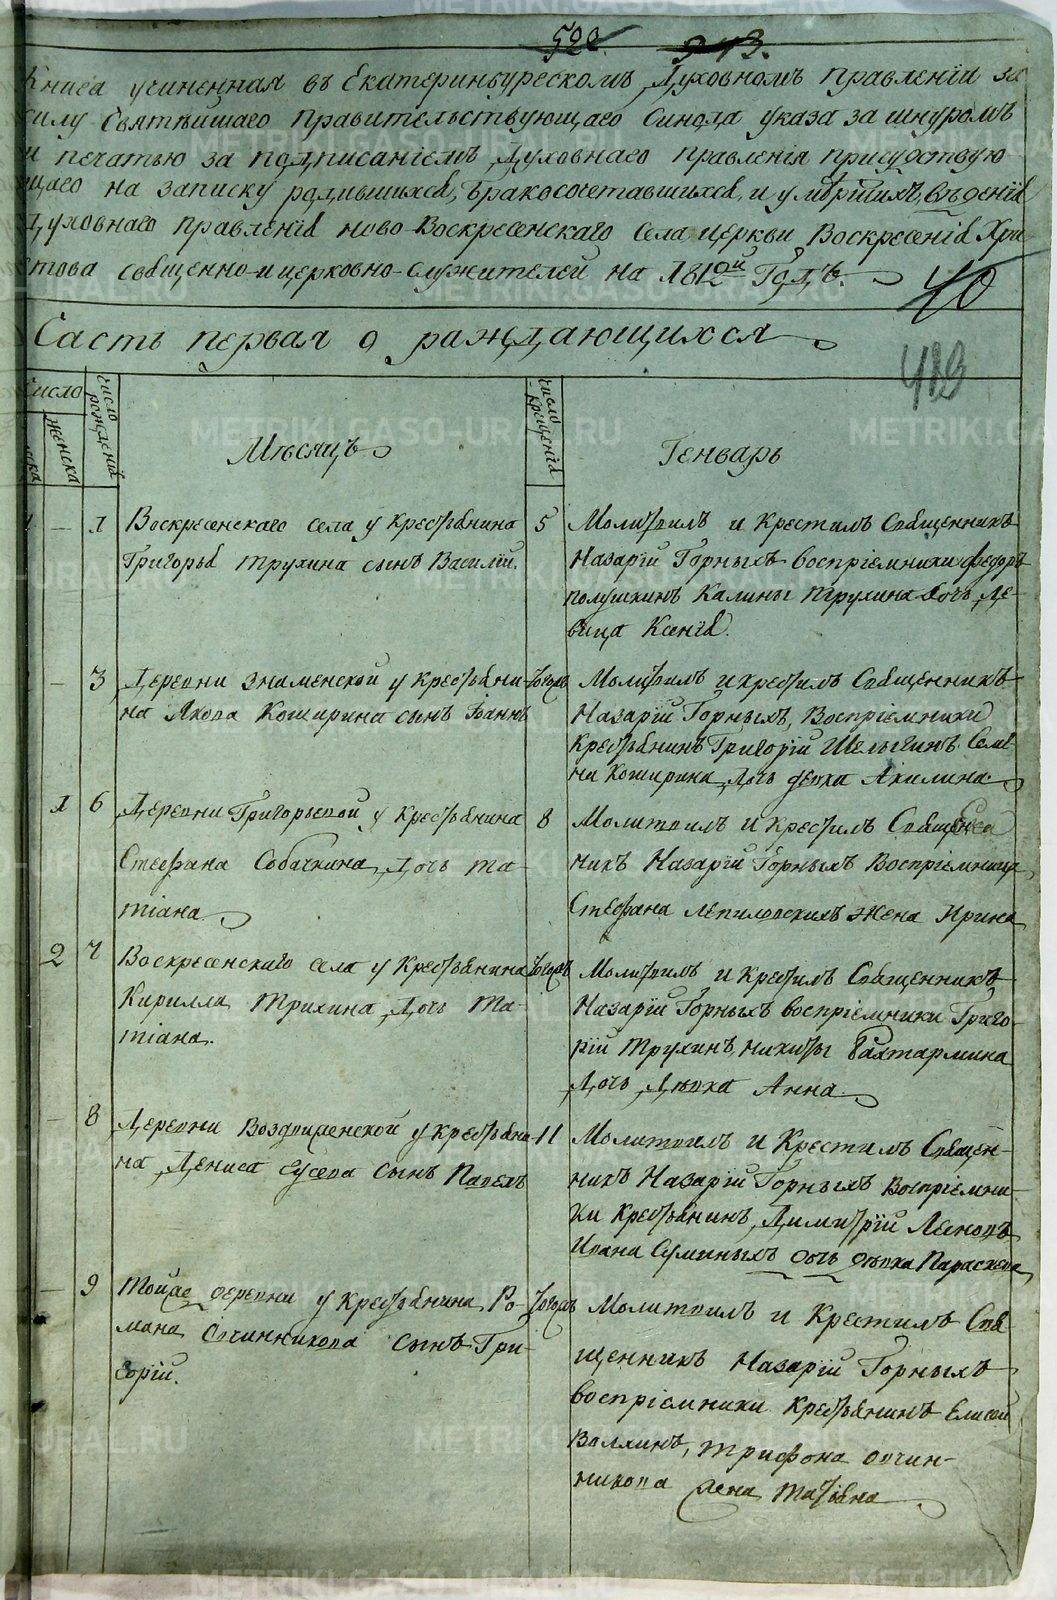 522. 313.
Книга учиненная въ Екатеринбургскомъ Духовномъ правленіи за
силу Святѣйшаго правительствующаго Синода указа за шнуромъ
и печатью за подписаніемъ Духовнаго правленія присудствую-
щаго на записку родившихся, бракосочетавшихся, и умершихъ, вѣденія
Духовнаго правленія ново-Воскресенскаго села церкви Воскресенія Хри-
стова священно-и церковно-служителей на 1812ой Годъ.
40
Часть первая о раждающихся
419
Число
женска
число рожденій
Мѣсяцъ
число крещеній
Генварь
1 — 1 Воскресенскаго села у крестьянина
Григорья Трухина сынъ Василій.
5 Молитвилъ и крестилъ Священникъ
Назарій Горныхъ воспріемники Федоръ
полушкинъ Калины Трухина дочь де-
вица Ксенія.
— 3 Деревни Знаменской у крестьяни-
на Якова Коширина сынъ Іоаннъ
тогожъ Молитвилъ и крестилъ Священникъ
Назарій Горныхъ, Воспріемники
крестьянинъ Григорій Шелыгинъ Семе-
на Коширина дочь девка Акилина
1 6 Деревни Григорьевой у крестьянина
Стефана Собачкина дочь та-
тіана
8 Молитвилъ и крестилъ Священ-
никъ Назарій Горныхъ Воспріемница
Стефана Лепиловскихъ жена Ирина
2 7 Воскресенскаго села у крестьянина
Кирилла Трухина дочь та-
тіана.
тогожъ Молитвилъ и крестилъ Священникъ
Назарій Горныхъ воспріемники Григо-
рій Трухинъ, никиты Бахтармина
дочь дѣвка Анна
— 8 Деревни Воздвиженской у крестьяни-
на Дениса Гусева сынъ Павелъ
11 Молитвилъ и Крестилъ Священ-
никъ Назарій Горныхъ Воспріемни-
ки крестьянинъ Димитрій Лесновъ
Ивана Суминыхъ дочь дѣвка Параскева
— 9 Тойже деревни у крестьянина Ро-
мана Овчинникова сынъ Гри-
горій.
тогожъ Молитвилъ и Крестилъ Свя-
щенникъ Назарій Горныхъ
воспріемники крестьянинъ Елисей
Валхинъ, трифона овчин-
никова жена татіана
METRIKI.GASO-URAL.RU